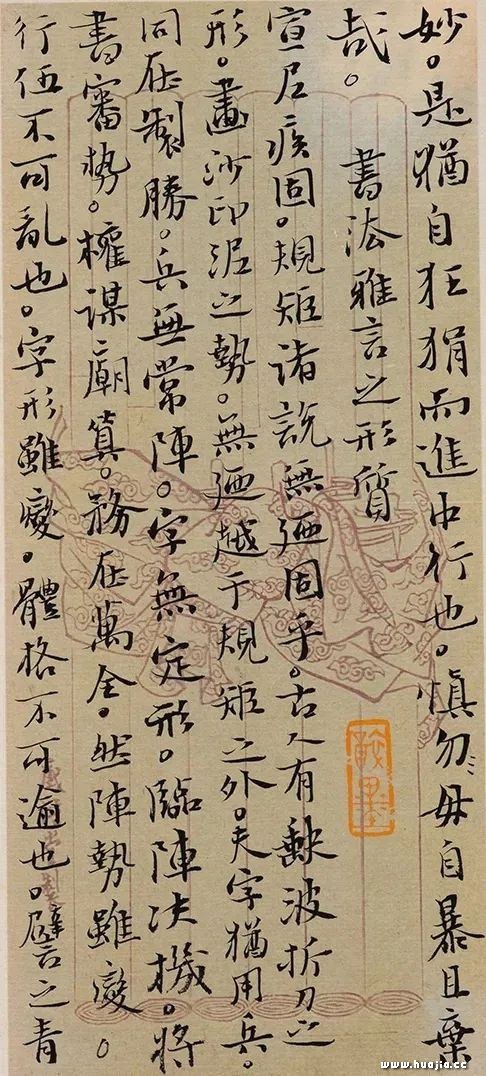 妙。是猶自狂狷而進中行也。慎勿毋自暴且棄
哉。 書法雅言之形質
宣尼疾固。規矩諸說無迺固乎。古人有缺波折刀之
形。畫沙印泥之勢。無迺越于規矩之外。夫字猶用兵。
同在製勝。兵無常陣。字無定形。臨陣决機。將
書審勢。權謀廟算。務在萬全。然陣勢雖變。
行伍不可亂也。字形雖變。體格不可逾也。譬之青
www.huajia.cc